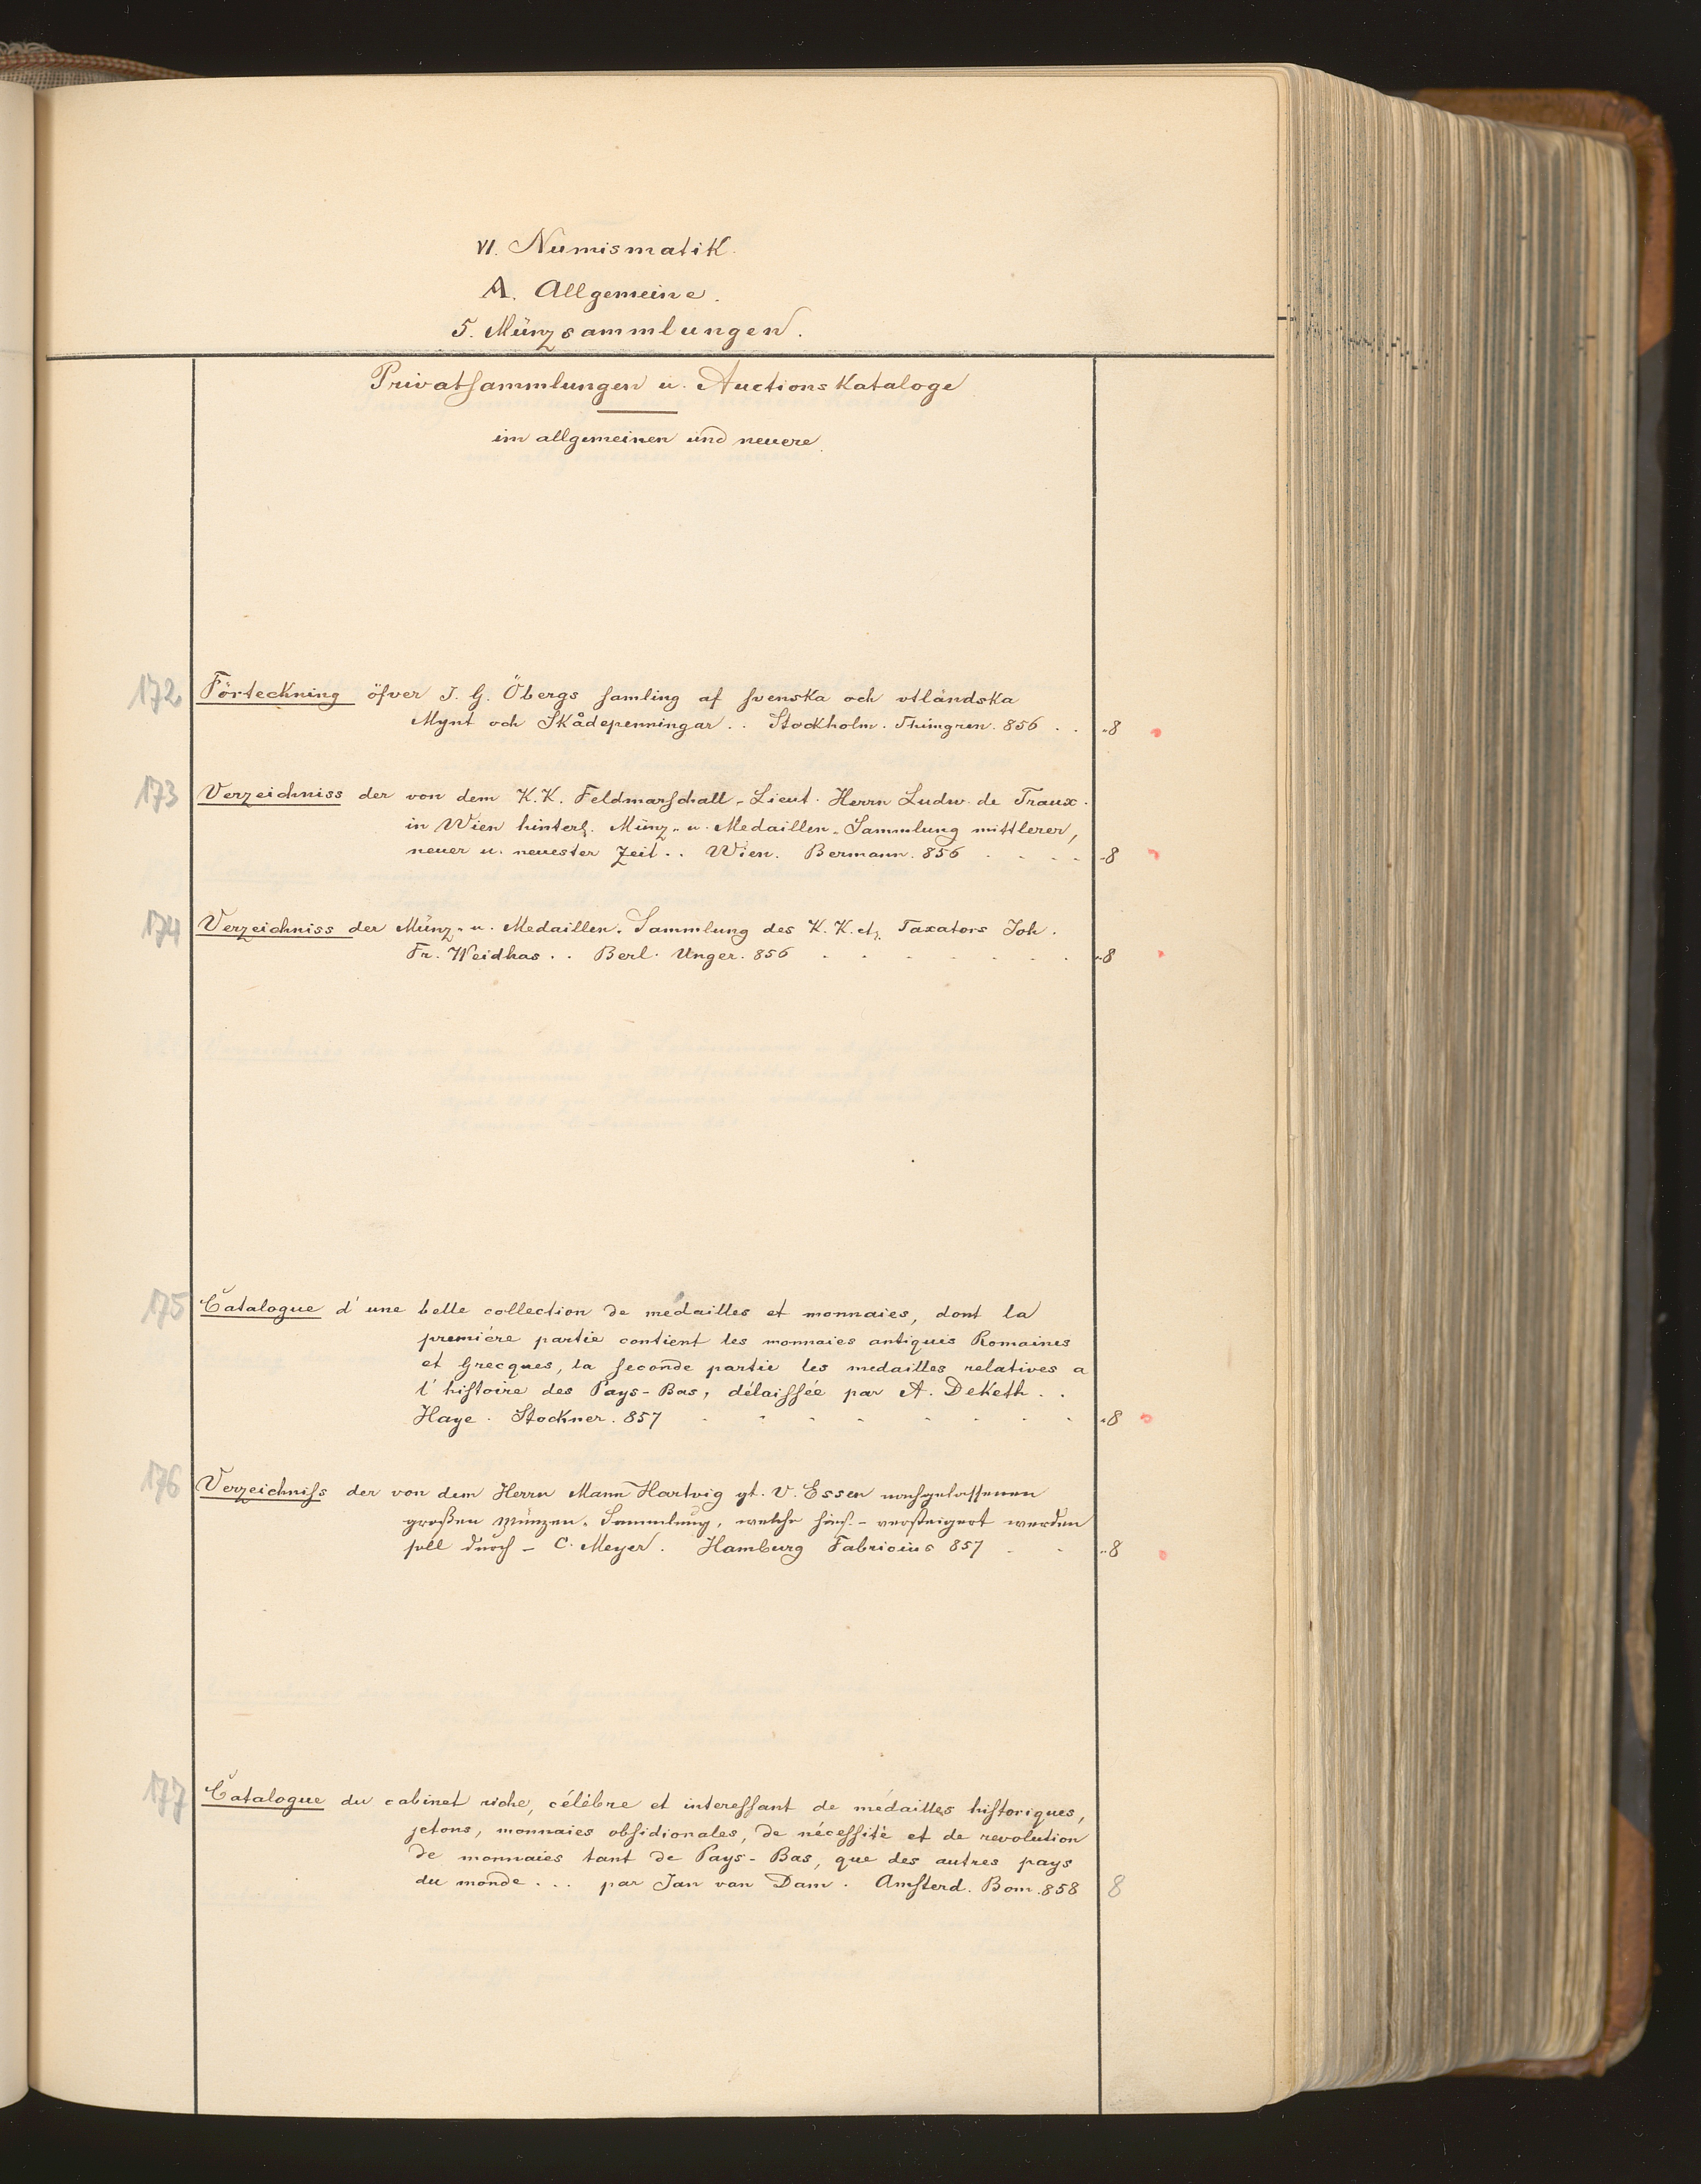 VI. Numismatik.
A. Allgemeine.
5. Münzsammlungen.
Privatsammlungen u. Auctionskataloge
im allgemeinen und neuere.
172 Förteckning öfver J. G. Öbergs samling af svenska och utländska
Mynt och Skådepenningar . . Stockholm. Thimgren. 856 . . -8
173 Verzeichniss der von dem K.K. Feldmarschall-Lieut. Herrn Ludw. de Traux.
in Wien hinterl. Münz- u. Medaillen-Sammlung mittlerer,
neuer u. neuester Zeit . . Wien. Bermann. 856 . . . . -8
174 Verzeichniss der Münz- u. Medaillen-Sammlung des K.K. etz. Taxators Joh.
Fr. Weidhas . . Berl. Unger. 856 . . . . . . -8
175 Catalogue d'une belle collection de medailles et monnaies, dont la
première partie contient les monnaies antiques Romaines
et Grecques, la seconde partie les medailles relatives a
l'histoire des Pays-Bas, délaissée par A. Deketh . .
Haye. Stockner. 857 . . . . . . . . -8
176 Verzeichniss der von dem Herrn Mann Hartvig gt. v. Essen nachgelassenen
großen Münzen-Sammlung, welche - versteigert werden
soll durch - C. Meyer. Hamburg Fabricius 857 . . -8
177 Catalogue du cabinet riche, célèbre et interessant de médailles historiques,
jetons, monnaies obsidionales, de nécessité et de revolution
de monnaies tant de Pays-Bas, que des autres pays
du monde . . . par Jan van Dam. Amsterd. Bom. 858 8